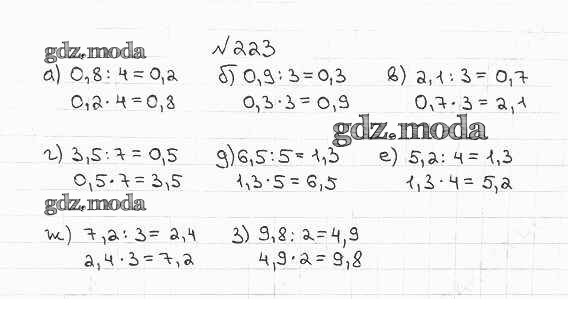 №223
gdz.moda
а) 0,8 : 4 = 0,2 б) 0,9 : 3 = 0,3 в) 2,1 : 3 = 0,7
0,2 · 4 = 0,8 0,3 · 3 = 0,9 0,7 · 3 = 2,1
gdz.moda
г) 3,5 : 7 = 0,5 д) 6,5 : 5 = 1,3 е) 5,2 : 4 = 1,3
0,5 · 7 = 3,5 1,3 · 5 = 6,5 1,3 · 4 = 5,2
gdz.moda
ж) 7,2 : 3 = 2,4 з) 9,8 : 2 = 4,9
2,4 · 3 = 7,2 4,9 · 2 = 9,8